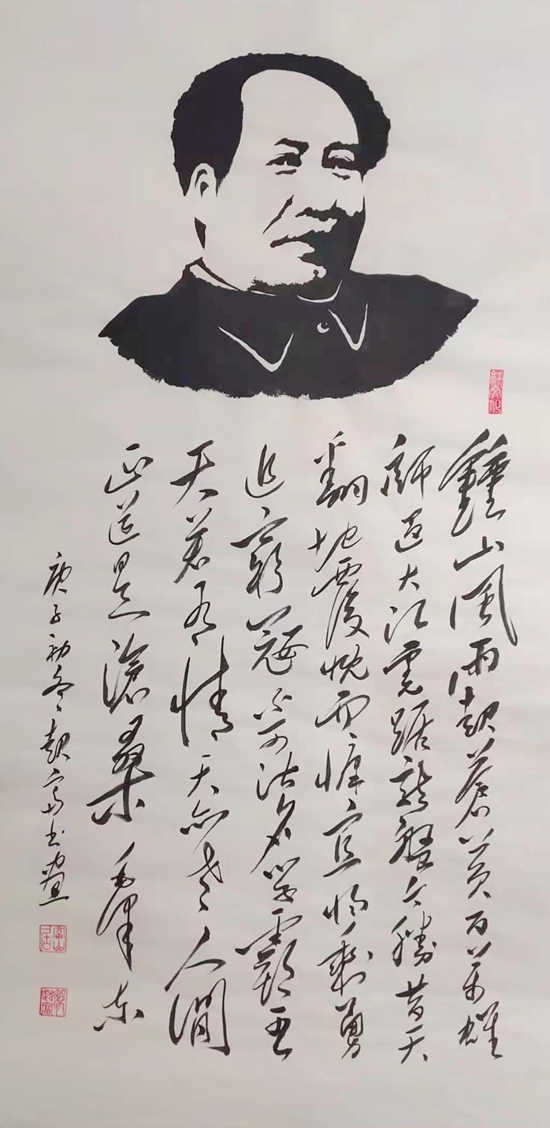 鍾山風雨起蒼黃百萬雄
師過大江虎踞龍盤今勝昔天
翻地覆慨而慷宜將剩勇
追窮寇不可沽名學霸王
天若有情天亦老人間
正道是滄桑 毛澤東
庚子初冬 书畫